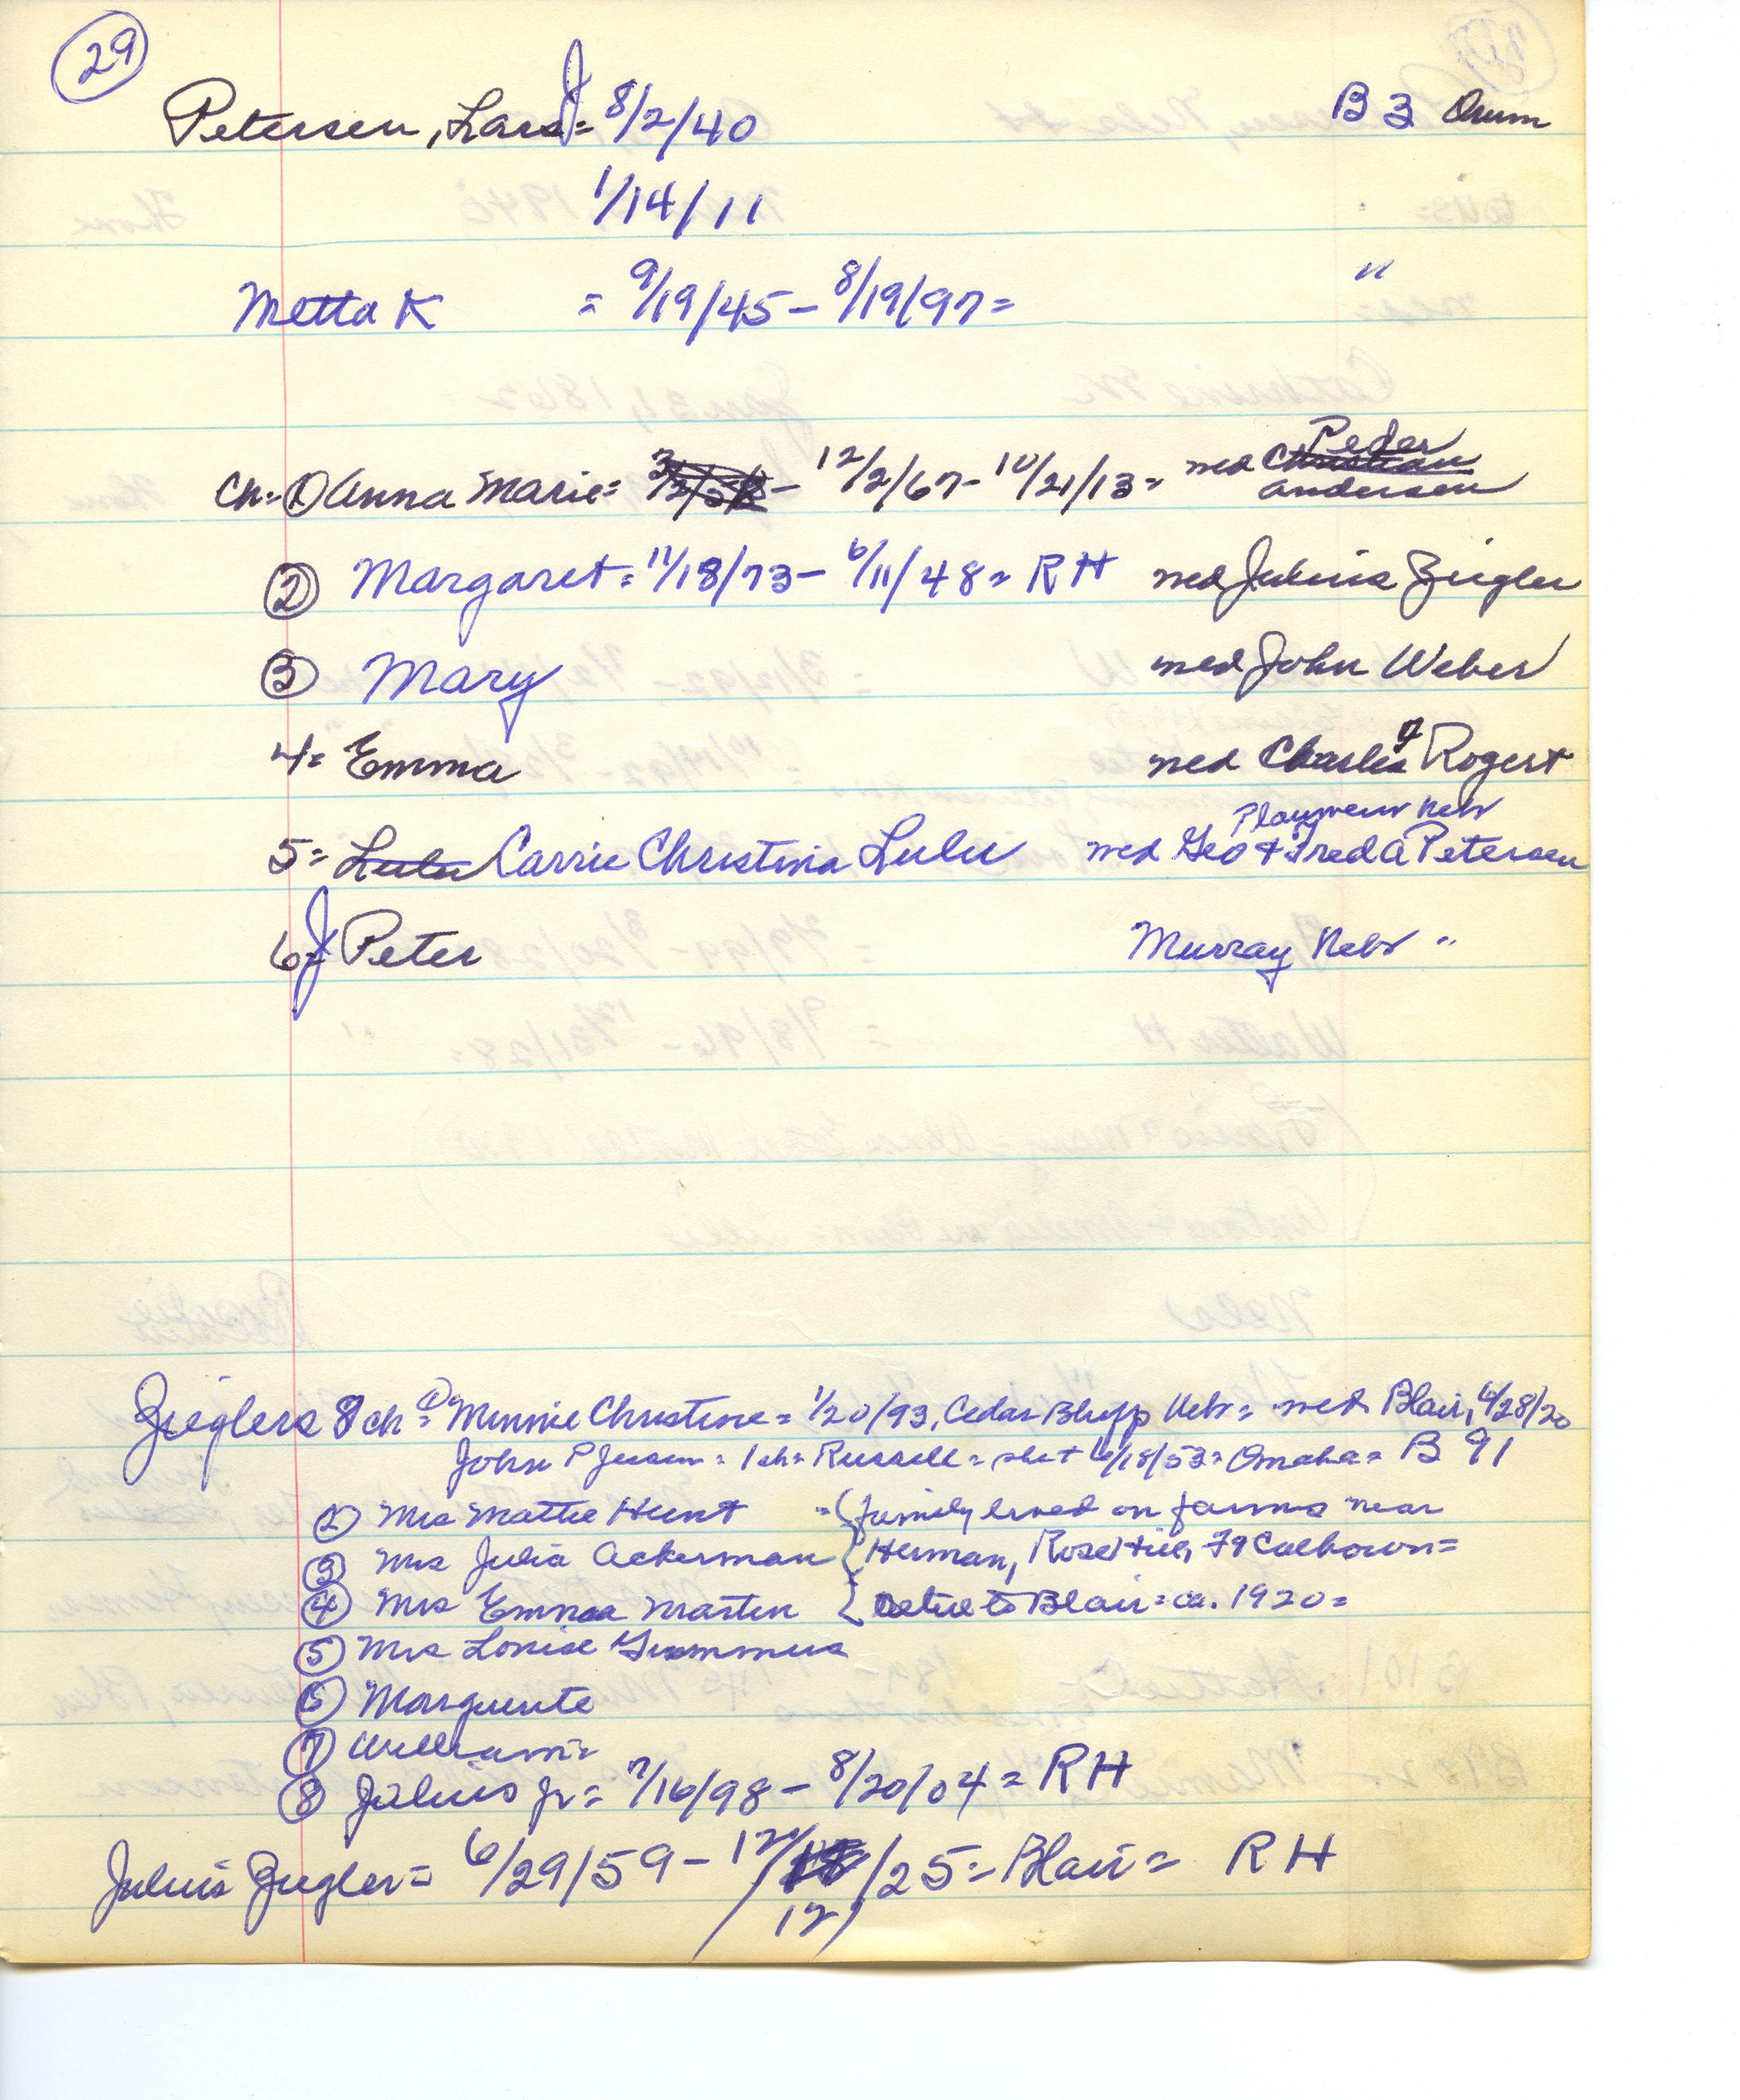 29
Petersen, Lars J = 8/2/40 B 3 Orum
1/14/11
Metta K = 9/19/45 - 8/19/97 = "
Ch = ① Anna Marie = - 12/2/67 - 10/21/13 = med Christian Peder Andersen
② Margaret = 11/18/73 - 6/11/48 = RH med Julius Ziegler
③ Mary med John Weber
4 = Emma med Charles J Rogert
Plaqmeur Nebr
5 = Lulu Carrie Christina Lulu med Geo & Fred A Petersen
6 = J Peter Murray Nebr "
Zieglers 8 ch = ① Minnie Christine = 1/20/93, Cedar Bluff Nebr = med Blair, 4/28/20
John P Jensen = 1 ch = Russell = she + 6/18/53 = Omaha = B 91
② Mrs Mattie Hunt = (family lived on farms near
③ Mrs Julia Ackerman { Herman, Rose Hill, Ft Calhoun =
④ Mrs Emma Martin { Retire to Blair = ca. 1920 =
⑤ Mrs Louise
⑥ Marguerite
⑦ William =
⑧ Julius Jr = 7/16/98 - 8/20/04 = RH
Julius Ziegler = 6/29/59 - 12/ /25 = Blair = RH
12